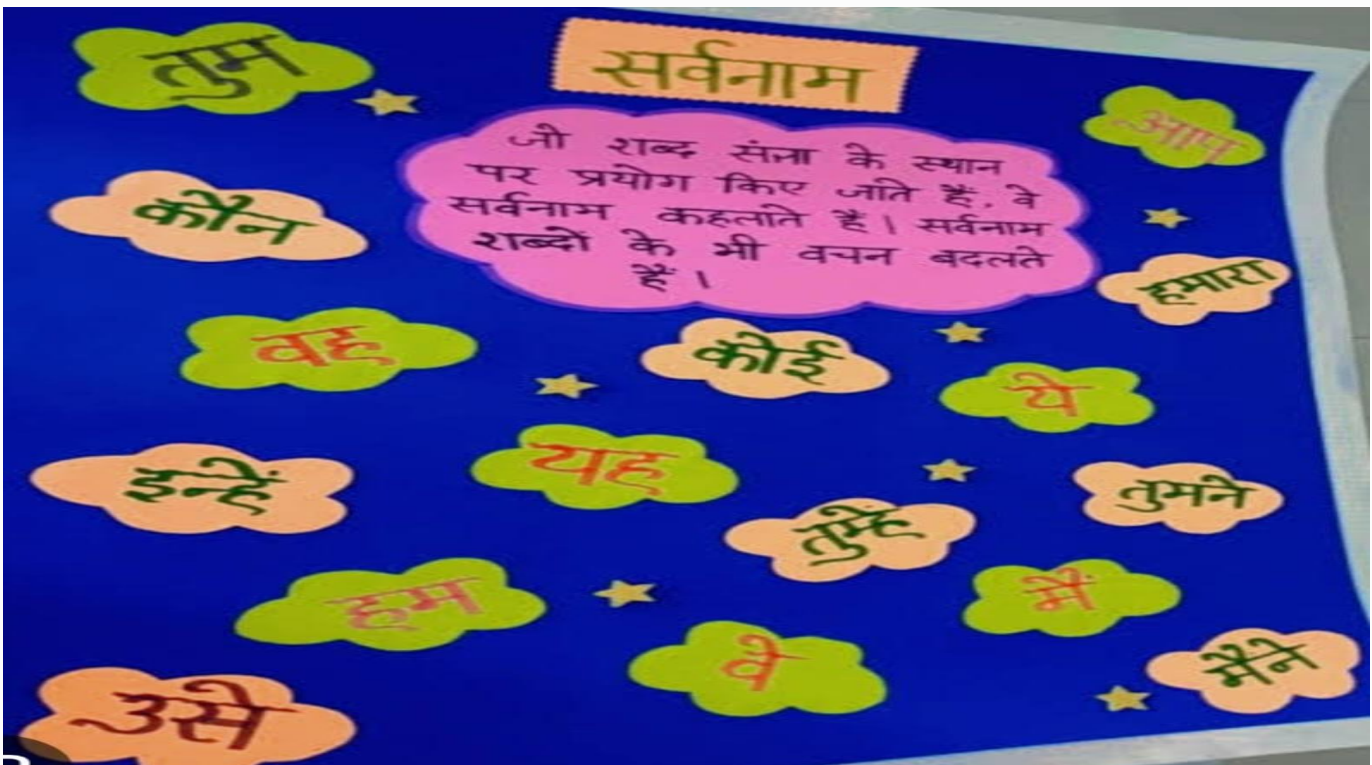 सर्वनाम
तुम
आप
जो शब्द संज्ञा के स्थान
पर प्रयोग किए जाते हैं, वे
सर्वनाम कहलाते हैं। सर्वनाम
शब्दों के भी वचन बदलते
हैं।
कौन
हमारा
वह
कोई
ये
इन्हें
यह
तुमने
तुम्हें
हम
मैं
वे
मैने
उसे